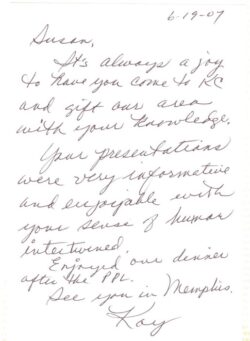 6-19-07
Susan,
It's always a joy
to have you come to KC
and gift our area
with your knowledge.
Your presentations
were very informative
and enjoyable with
your sense of humor
intertwined.
Enjoyed our dinner
after the PPL.
See you in Memphis.
Kay